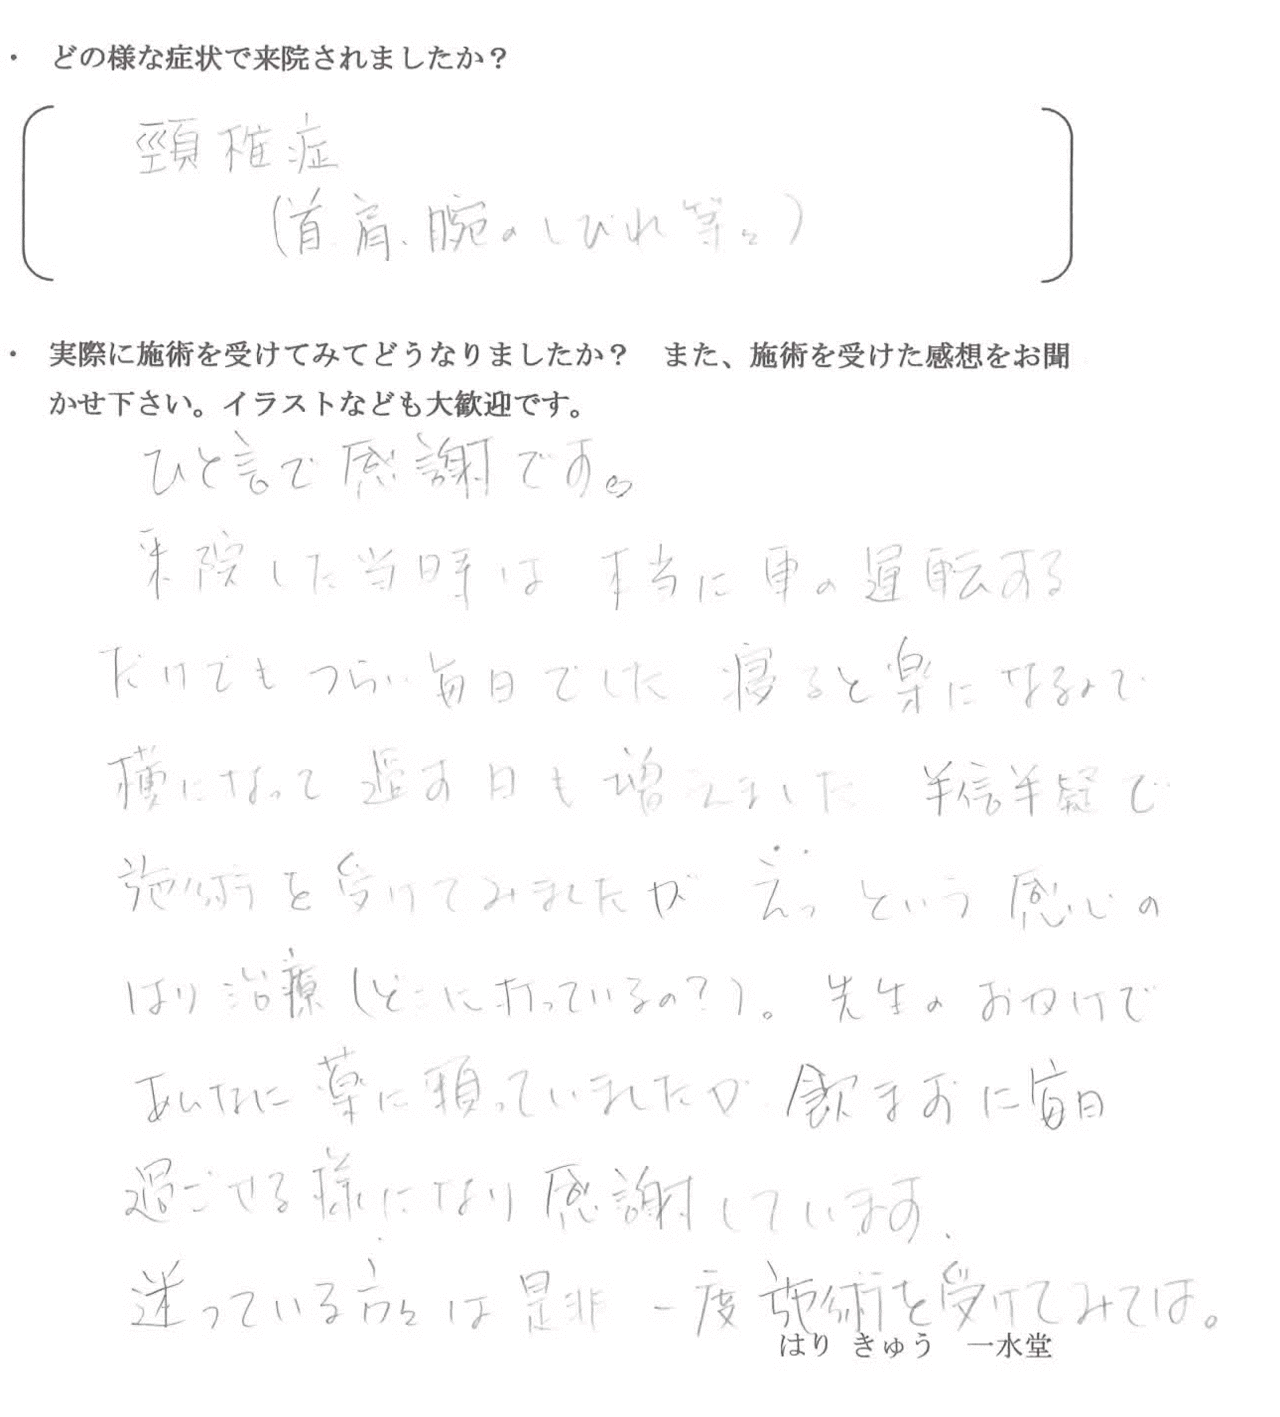 ・ どの様な症状で来院されましたか？
頸椎症
(首、肩、腕のしびれ等々)
・ 実際に施術を受けてみてどうなりましたか？　また、施術を受けた感想をお聞
かせ下さい。イラストなども大歓迎です。
ひと言で感謝です。
来院した当時は 本当に車の運転する
だけでもつらい毎日でした 寝ると楽になるので
横になって過す日も増えました 半信半疑で
施術を受けてみましたが えっ という感じの
はり治療(どこに打っているの？)。先生のおかげで
あんなに薬に頼っていましたが 飲まずに毎日
過ごせる様になり感謝しています、
迷っている方々は是非一度施術を受けてみては。
はり きゅう　一水堂